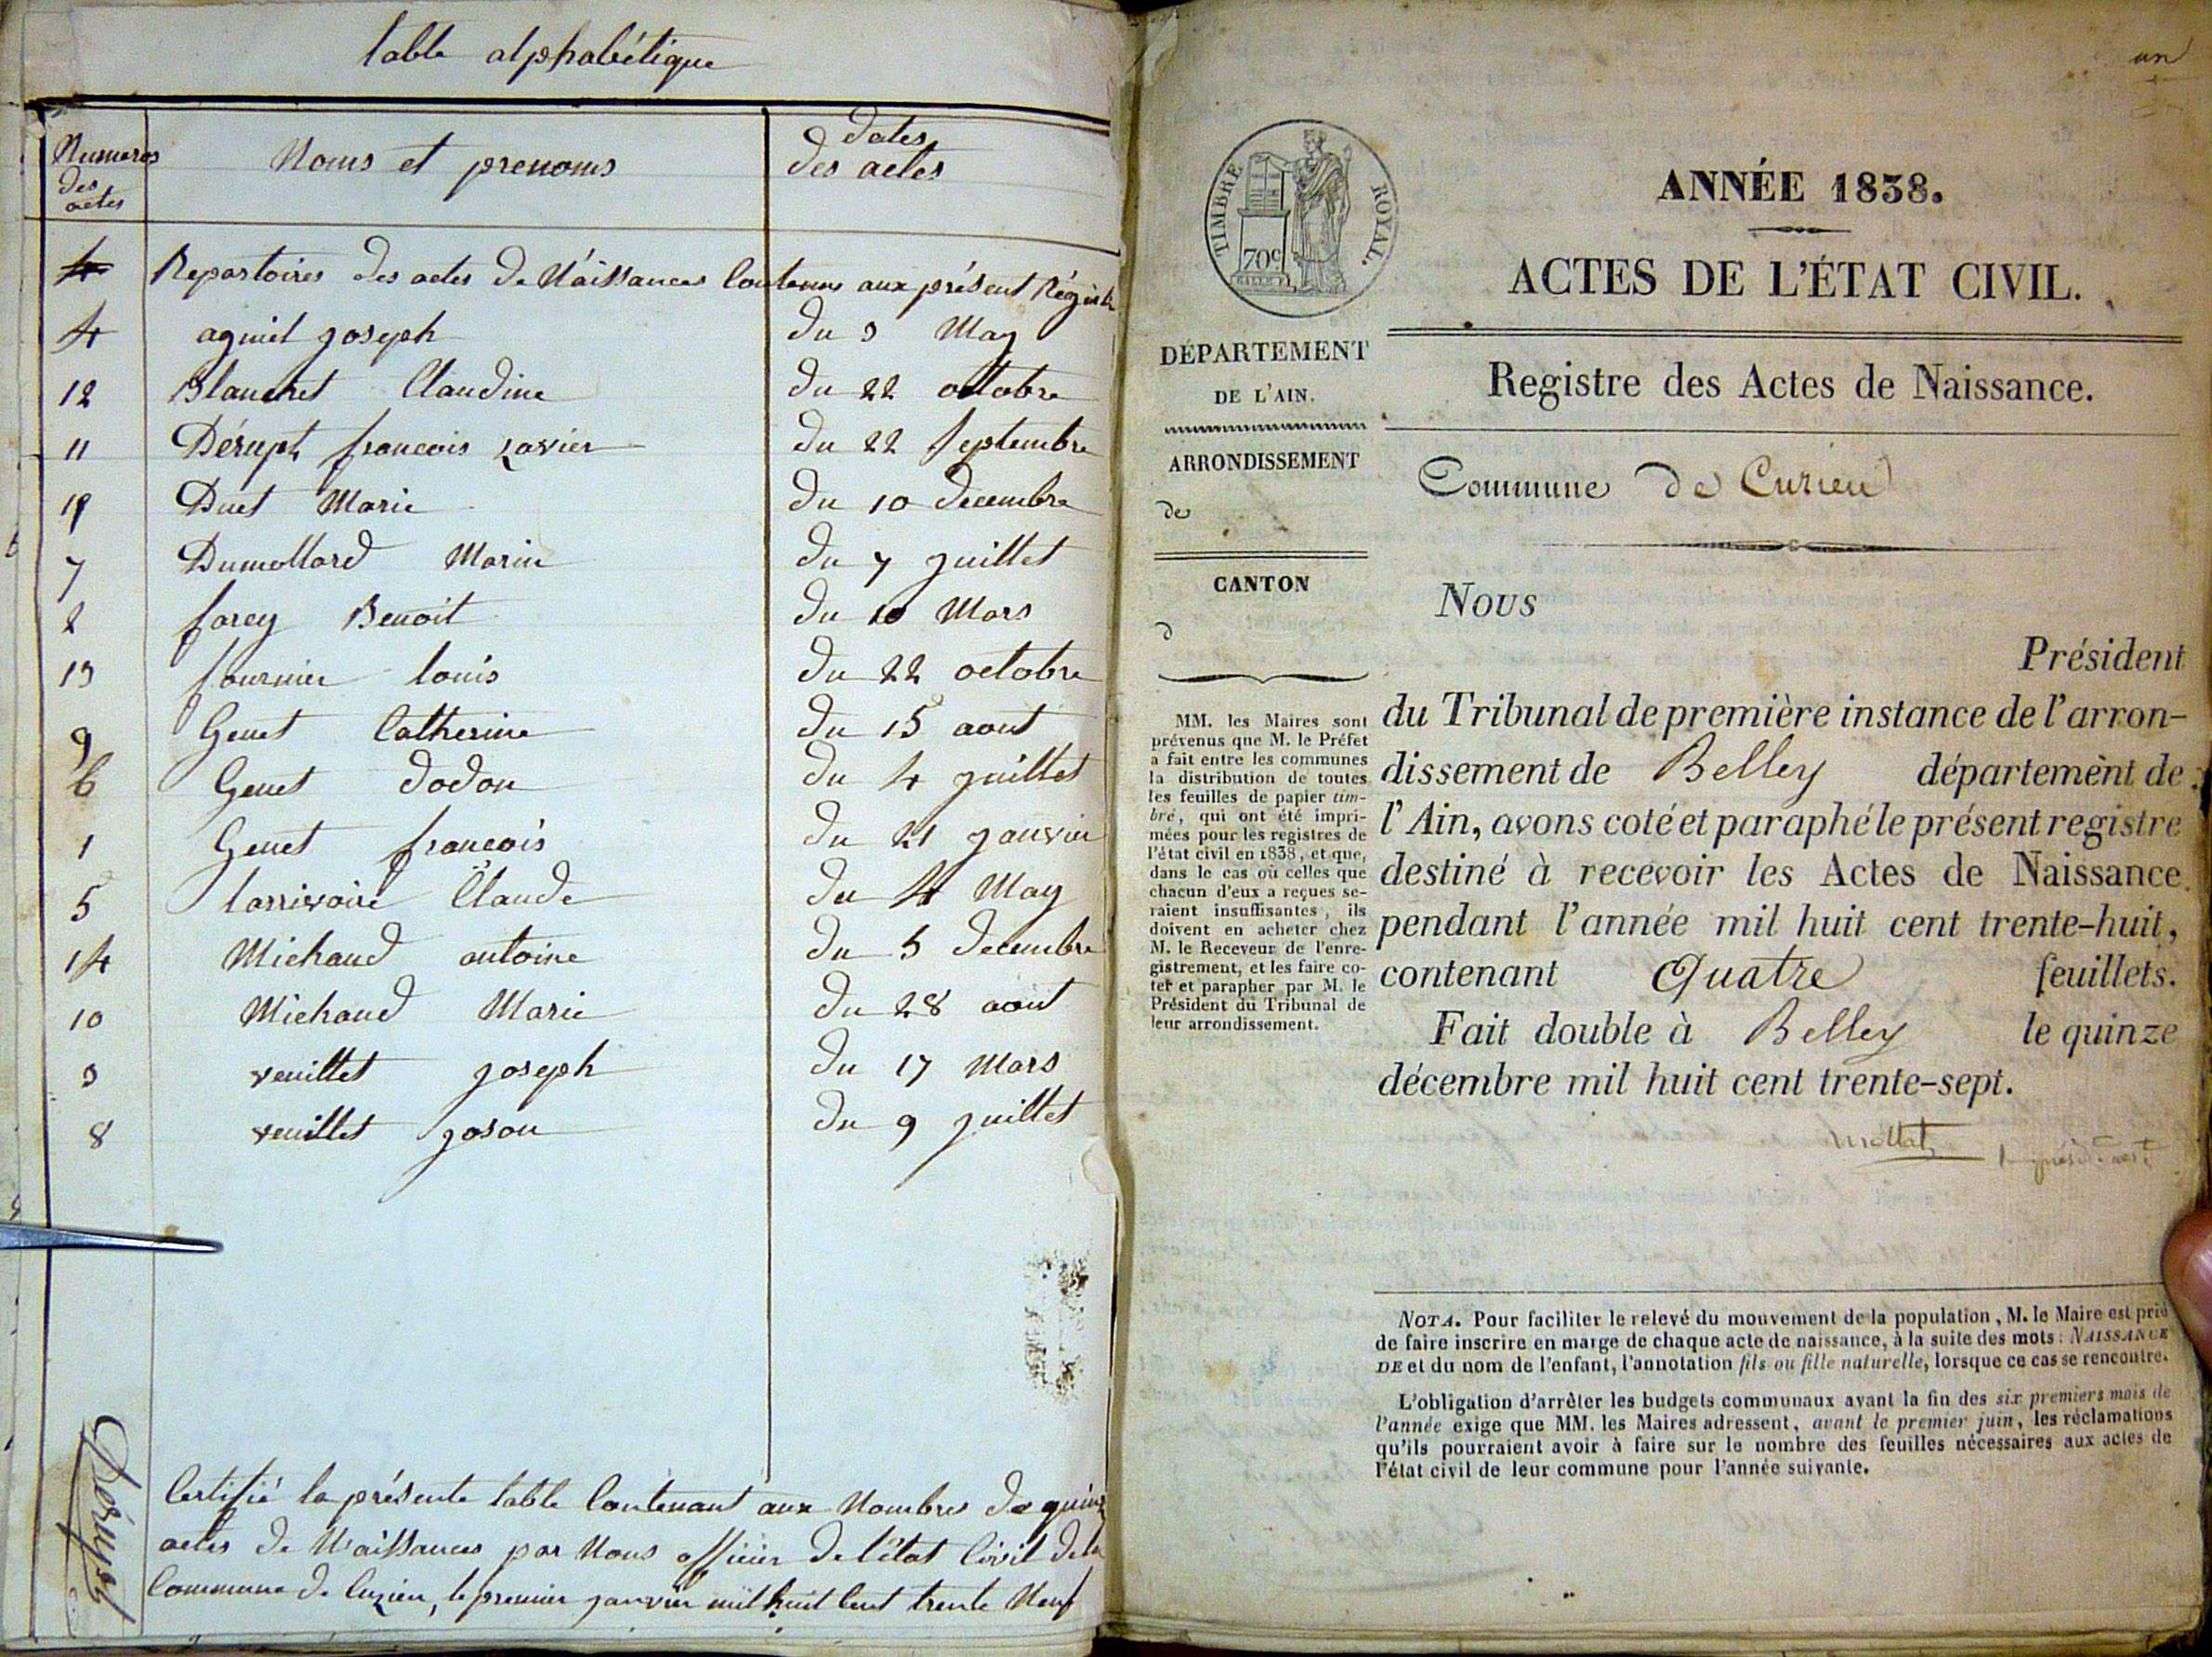 table alphabétique
Numeros des actes
Noms et prenoms
dates des actes
Repartoires des actes de Náissances Contenus aux présent Régistre
4 aguiel joseph du 3 May
12 Blanchet Claudine du 22 octobre
11 Dérupt francois xavier du 22 septembre
Duet Marie du 10 decembre
7 Dumollard Marie du 7 juillet
2 farcy Benoit du 10 Mars
13 fournier louis du 22 octobre
9 Genet Catherine du 15 aout
6 Genet dodon du 4 juillet
1 Genet francois du 21 janvier
5 larrivoire Claude du 4 May
14 Michaud antoine du 5 decembre
10 Michaud Marie du 28 aout
3 veuillet joseph du 17 Mars
8 veuillet joson du 9 juillet
Certifié la présente table Contenant aux Nombres de quinze
actes de Naissances par Nous officier de l'état Civil de la
Commune de Cuzieu, le premier janvier mil huit Cent trente Neuf
Dérupt
un
TIMBRE ROYAL.
70c
ANNÉE 1838.
ACTES DE L'ÉTAT CIVIL.
DÉPARTEMENT
DE L'AIN.
Registre des Actes de Naissance.
ARRONDISSEMENT
de
Commune de Cuzieu
CANTON
d
MM. les Maires sont
prévenus que M. le Préfet
a fait entre les communes
la distribution de toutes
les feuilles de papier tim-
bré, qui ont été impri-
mées pour les registres de
l'état civil en 1838, et que,
dans le cas où celles que
chacun d'eux a reçues se-
raient insuffisantes, ils
doivent en acheter chez
M. le Receveur de l'enre-
gistrement, et les faire co-
ter et parapher par M. le
Président du Tribunal de
leur arrondissement.
NOUS
Président
du Tribunal de première instance de l'arron-
dissement de Belley département de
l'Ain, avons coté et paraphé le présent registre
destiné à recevoir les Actes de Naissance
pendant l'année mil huit cent trente-huit,
contenant Quatre feuillets.
Fait double à Belley le quinze
décembre mil huit cent trente-sept.
NOTA. Pour faciliter le relevé du mouvement de la population, M. le Maire est prié
de faire inscrire en marge de chaque acte de naissance, à la suite des mots : NAISSANCE
DE et du nom de l'enfant, l'annotation fils ou fille naturelle, lorsque ce cas se rencontre.
L'obligation d'arrêter les budgets communaux avant la fin des six premiers mois de
l'année exige que MM. les Maires adressent, avant le premier juin, les réclamations
qu'ils pourraient avoir à faire sur le nombre des feuilles nécessaires aux actes de
l'état civil de leur commune pour l'année suivante.